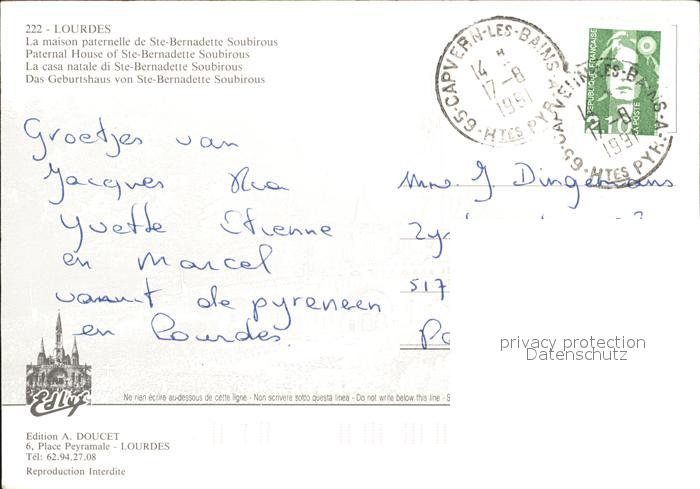 222 - LOURDES
La maison paternelle de Ste-Bernadette Soubirous
Paternal House of Ste-Bernadette Soubirous
La casa natale di Ste-Bernadette Soubirous
Das Geburtshaus von Ste-Bernadette Soubirous
65-CAPVERN-LES-BAINS-A
14 H
17-8
1991
HTES PYR.
RÉPUBLIQUE FRANÇAISE
LA POSTE
65-CAPVERN-LES-BAINS-A
17-8
1991
HTES PYR.
Groetjes van
Jacques Ria
Yvette Etienne
en Marcel
vanuit de pyreneen
en Lourdes.
J. Dingemans
517
privacy protection
Datenschutz
Edlys
Ne rien écrire au-dessous de cette ligne - Non scrivere sotto questa linea - Do not write below this line - S
Edition A. DOUCET
6, Place Peyramale - LOURDES
Tél: 62.94.27.08
Reproduction Interdite